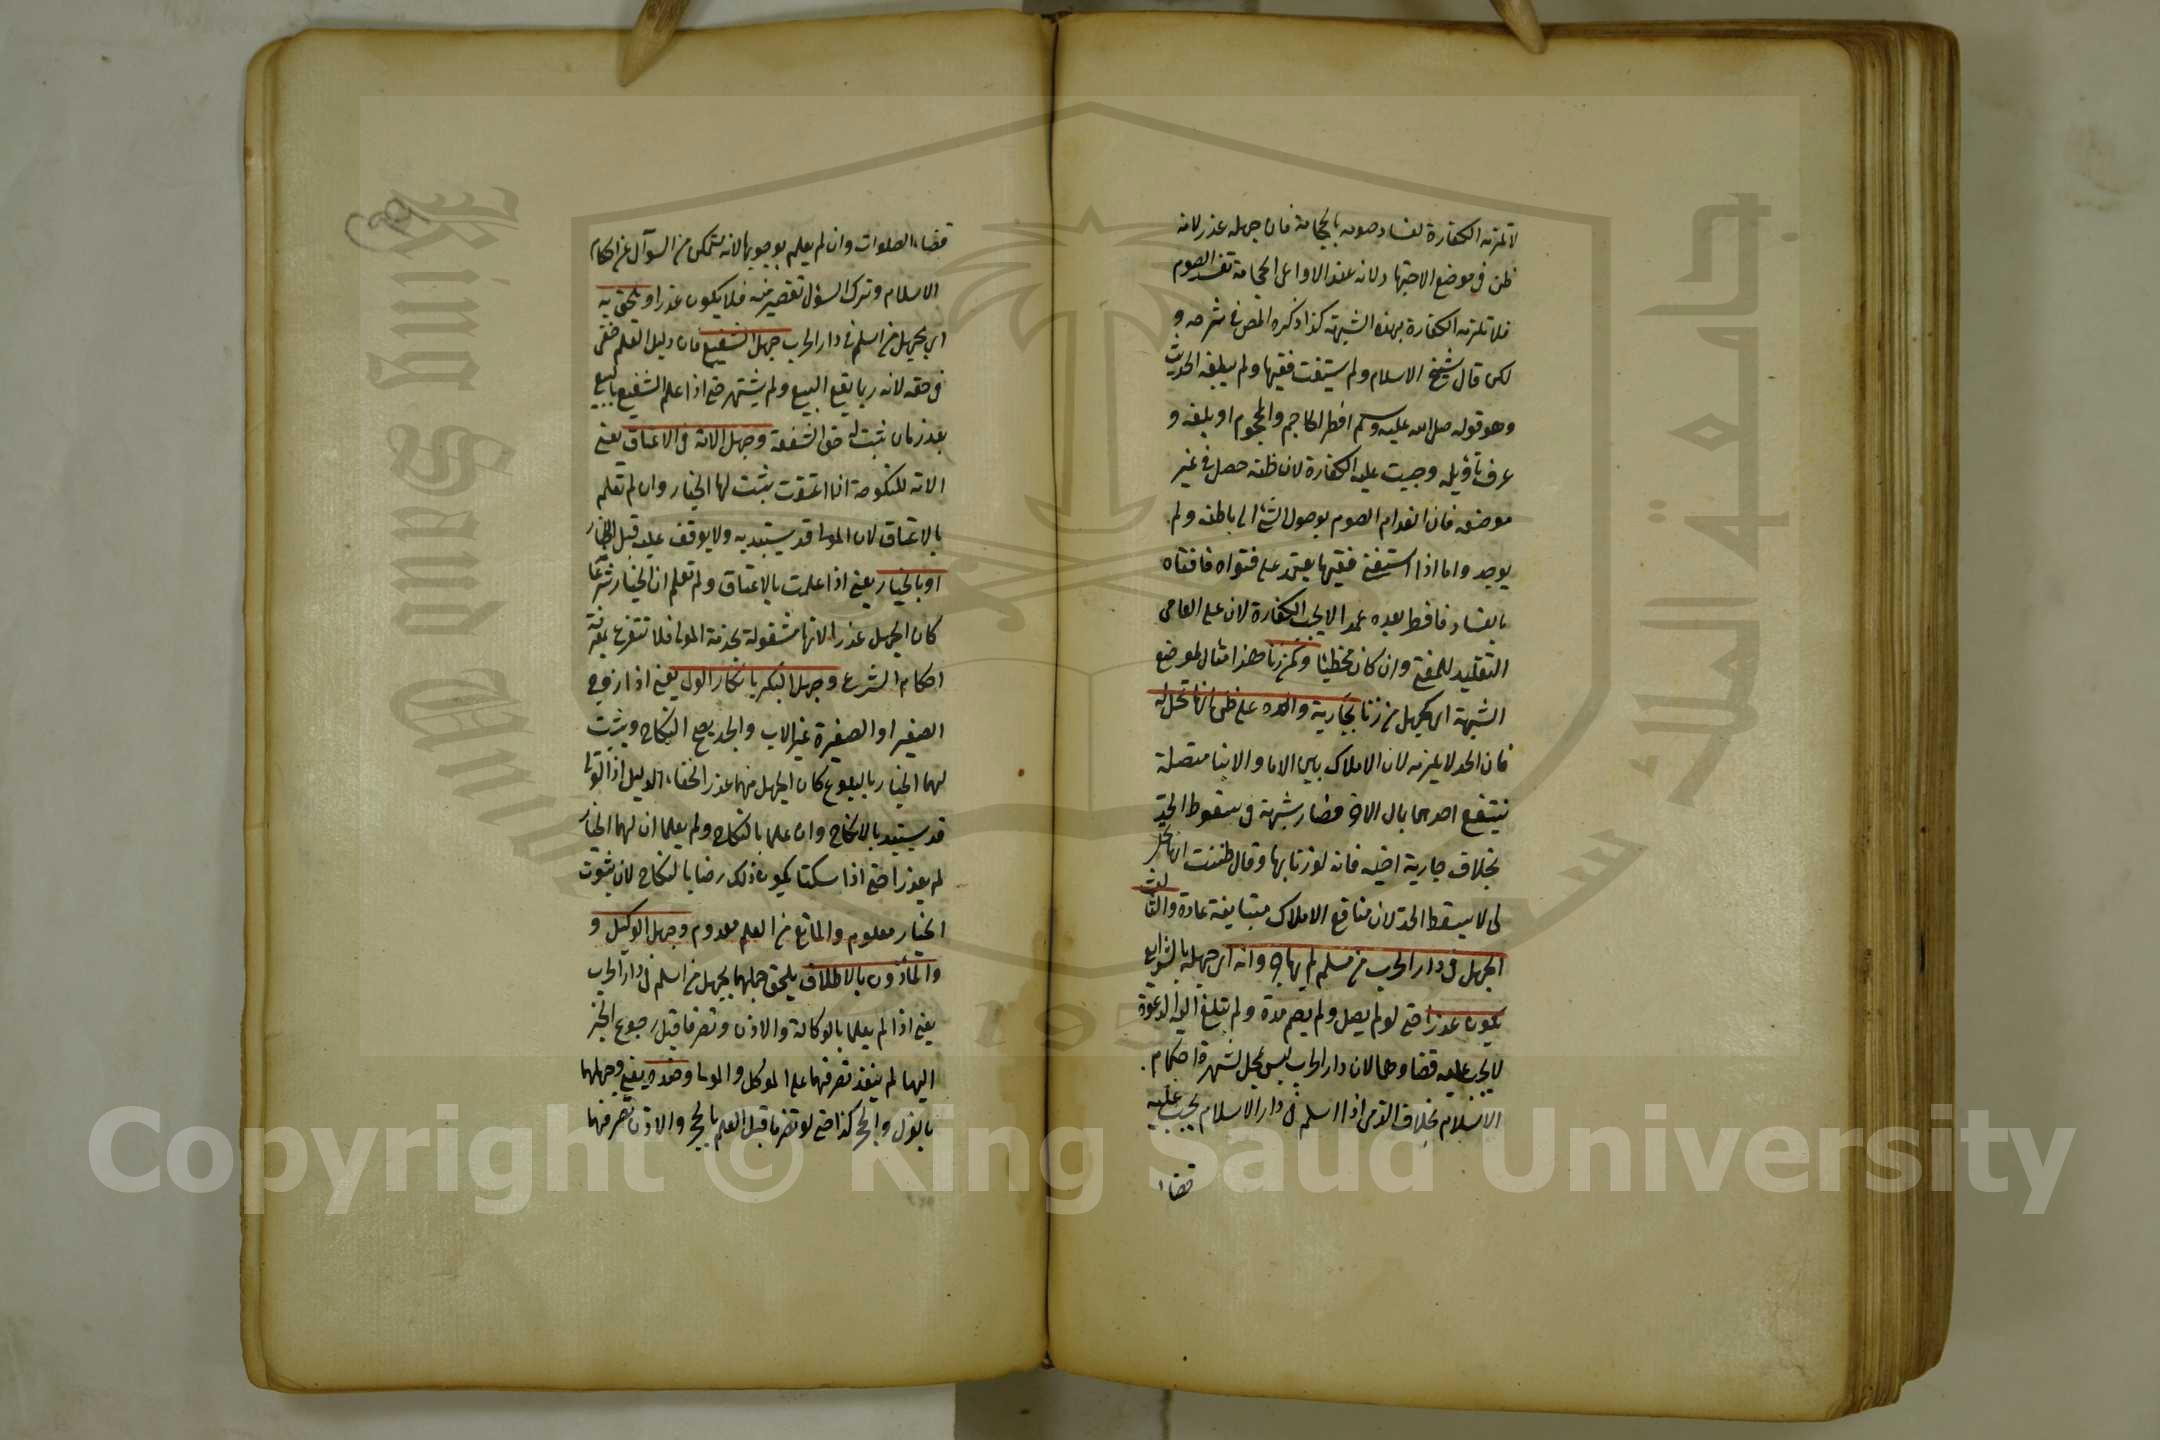 لا تلزمه الكفارة لفساد صومه بالحجامة فان جهله عذر لانه
ظن في موضع الاجتهاد لانه عند الاوزاعي الحجامة تفسد الصوم
فلا تلزمه الكفارة بهذه الشبهة كذا ذكره المص في شرحه و
لكن قال شيخ الاسلام ولم يستفت فقيها ولم يبلغه الحديث
وهو قوله صلى الله عليه وسلم افطر الحاجم والمحجوم او بلغه و
عرف تأويله وجبت عليه الكفارة لان ظنه حصل في غير
موضعه فان انعدام الصوم بوصول الشئ الى باطنه ولم
يوجد واما اذا استفتى فقيها يعتمد على فتواه فافتاه
بالفساد فافطر بعده عمدا لا يجب الكفارة لان على العامي
التقليد للمفتي وان كان مخطئا وكمن زنا هذا مثال لموضع
الشبهة اي كجهل من زنا بجارية والده على ظن انها تحل له
فان الحد لا يلزمه لان الاملاك بين الابا والابنا متصلة
ينتفع احدهما بمال الاخر فصار شبهة في سقوط الحد
بخلاف جارية اخيه فانه لو زنا بها وقال ظننت انها تحل
لى لا يسقط الحد لان منافع الاملاك متباينة عادة والثالث
الجهل في دار الحرب من مسلم لم يهاجر وانه اي جهله بالشرايع
يكون عذرا حتى لو لم يصل ولم يصم مدة ولم تبلغ اليه الدعوة
لا يجب عليه قضاوهما لان دار الحرب ليس بمحل لشهرة احكام
الاسلام بخلاف الذمي اذا اسلم في دار الاسلام يجب عليه
قضاء
قضاء الصلوات وان لم يعلم بوجوبها لانه متمكن من السؤال عن احكام
الاسلام وترك السؤل تقصير منه فلا يكون عذرا ويلحق به
اي بجهل من اسلم في دار الحرب جهل الشفيع فان دليل العلم خفي
في حقه لانه ربما يقع البيع ولم يشتهر حتى اذا علم الشفيع بالبيع
بعد زمان يثبت له حق الشفعة وجهل الامة في الاعتاق يعني
الامة المنكوحة اذا اعتقت يثبت لها الخيار وان لم تعلم
بالاعتاق لان المولى قد يستبد به ولا يوقف عليه قبل اظهار
او بالخيار يعني اذا علمت بالاعتاق ولم تعلم ان الخيار شرعا
كان الجهل عذرا لانها مشغولة بخدمة المولى فلا تتفرغ لمعرفة
احكام الشرع وجهل البكر بانكاح الولي يعني اذا زوج
الصغير او الصغيرة غير الاب والجد يصح النكاح ويثبت
لهما الخيار بالبلوغ كان الجهل منهما عذرا لخفاء الدليل اذ الولي
قد يستبد بالانكاح وان علما بالنكاح ولم يعلما ان لهما الخيار
لم يعذرا حتى اذا سكتا يكون ذلك رضا بالنكاح لان ثبوت
الخيار معلوم والمانع من العلم معدوم وجهل الوكيل و
والمأذون بالاطلاق يلحق جهلهما بجهل من اسلم في دار الحرب
يعني اذا لم يعلما بالوكالة والاذن وتصرفا قبل رجوع الخبر
اليهما لم ينفذ تصرفهما على الموكل والمولى وضده يعني وجهلهما
بالعزل والحجر كذا حتى لو تصرفا قبل العلم بالحجر والاذن تصرفهما
جامعة الملك سعود
King Saud University
195
Copyright © King Saud University